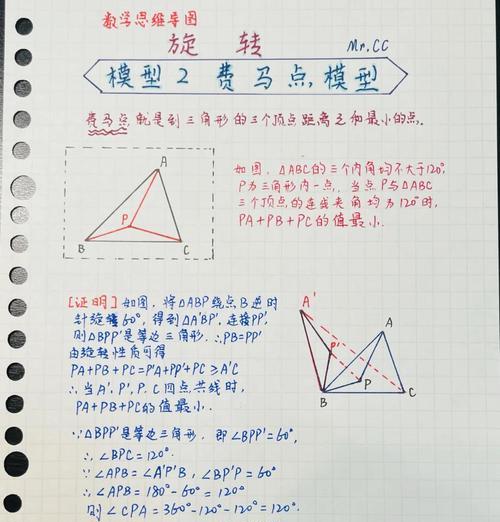 数学思维导图
旋 转
Mr.CC
模型2 费马点模型
费马点就是到三角形的三个顶点距离之和最小的点.
A
P
B
C
如图,△ABC的三个内角均不大于120°,
P为三角形内一点,当点P与△ABC
三个顶点的连线夹角均为120°时,
PA+PB+PC的值最小.
[证明]如图,将△ABP绕点B逆时
针旋转60°,得到△A'BP',连接PP',
则△BPP'是等边三角形.∴PB=PP'
由旋转性质可得
PA+PB+PC=P'A'+PP'+PC≥A'C
∴当A'、P'、P、C四点共线时,
PA+PB+PC的值最小.
A'
A
P'
P
B
C
∵△BPP'是等边三角形,即∠BPP'=60°,
∴∠BPC=120°.
∵∠APB=∠A'P'B,∠BP'P=60°
∴∠APB=180°-60°=120°
则∠CPA=360°-120°-120°=120°.